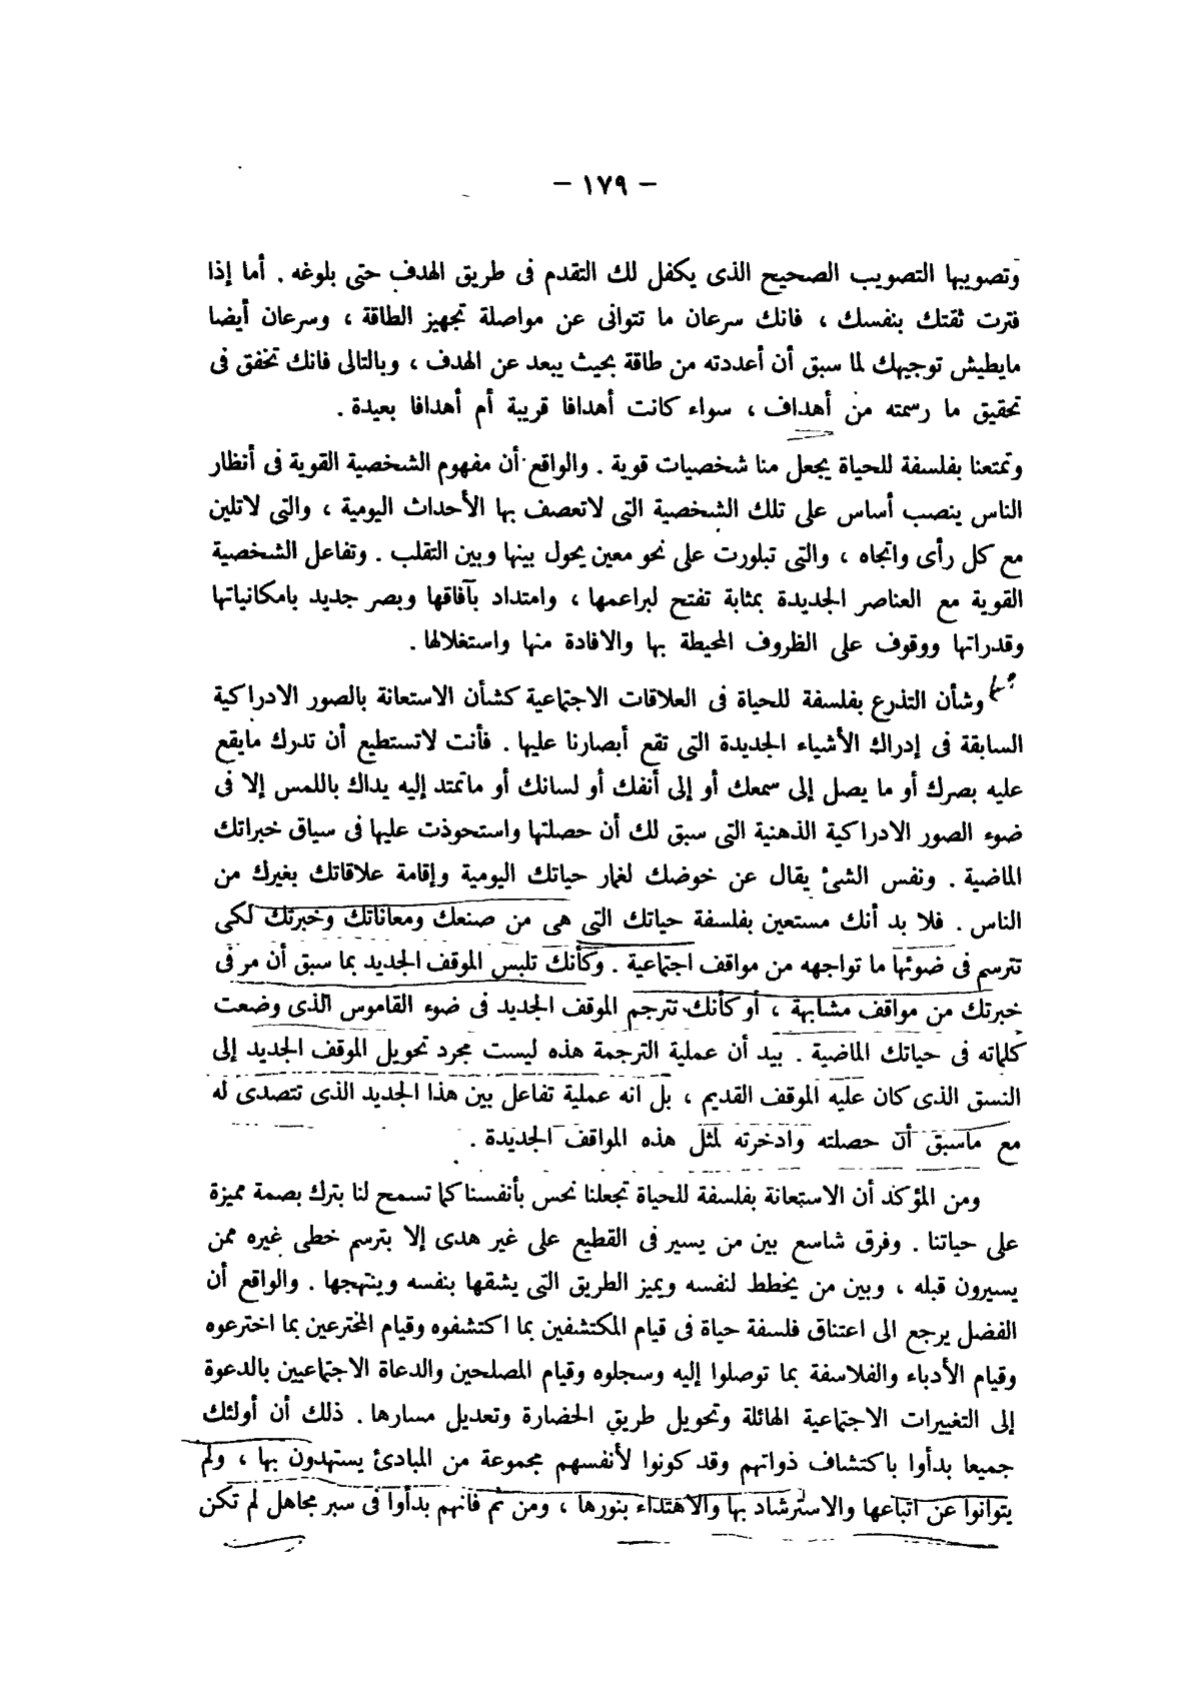 — ١٧٩ —
وتصويبها التصويب الصحيح الذى يكفل لك التقدم فى طريق الهدف حتى بلوغه . أما إذا
فترت ثقتك بنفسك ، فانك سرعان ما تتوانى عن مواصلة تجهيز الطاقة ، وسرعان أيضا
مايطيش توجيهك لما سبق أن أعددته من طاقة بحيث يبعد عن الهدف ، وبالتالى فانك تخفق فى
تحقيق ما رسمته من أهداف ، سواء كانت أهدافا قريبة أم أهدافا بعيدة .
وتمتعنا بفلسفة للحياة يجعل منا شخصيات قوية . والواقع أن مفهوم الشخصية القوية فى أنظار
الناس ينصب أساس على تلك الشخصية التى لاتعصف بها الأحداث اليومية ، والتى لاتلين
مع كل رأى واتجاه ، والتى تبلورت على نحو معين يحول بينها وبين التقلب . وتفاعل الشخصية
القوية مع العناصر الجديدة بمثابة تفتح لبراعمها ، وامتداد بآفاقها وبصر جديد بامكانياتها
وقدراتها ووقوف على الظروف المحيطة بها والافادة منها واستغلالها .
وشأن التذرع بفلسفة للحياة فى العلاقات الاجتماعية كشأن الاستعانة بالصور الادراكية
السابقة فى إدراك الأشياء الجديدة التى تقع أبصارنا عليها . فأنت لاتستطيع أن تدرك مايقع
عليه بصرك أو ما يصل إلى سمعك أو إلى أنفك أو لسانك أو ماتمتد إليه يداك باللمس إلا فى
ضوء الصور الادراكية الذهنية التى سبق لك أن حصلتها واستحوذت عليها فى سياق خبراتك
الماضية . ونفس الشئ يقال عن خوضك لغمار حياتك اليومية وإقامة علاقاتك بغيرك من
الناس . فلا بد أنك مستعين بفلسفة حياتك التى هى من صنعك ومعاناتك وخبرتك لكى
تترسم فى ضوئها ما تواجهه من مواقف اجتماعية . وكأنك تلبس الموقف الجديد بما سبق أن مر فى
خبرتك من مواقف مشابهة ، أو كأنك تترجم الموقف الجديد فى ضوء القاموس الذى وضعت
كلماته فى حياتك الماضية . بيد أن عملية الترجمة هذه ليست مجرد تحويل الموقف الجديد إلى
النسق الذى كان عليه الموقف القديم ، بل انه عملية تفاعل بين هذا الجديد الذى تتصدى له
مع ماسبق أن حصلته وادخرته لمثل هذه المواقف الجديدة .
ومن المؤكد أن الاستعانة بفلسفة للحياة تجعلنا نحس بأنفسنا كما تسمح لنا بترك بصمة مميزة
على حياتنا . وفرق شاسع بين من يسير فى القطيع على غير هدى إلا بترسم خطى غيره ممن
يسيرون قبله ، وبين من يخطط لنفسه ويميز الطريق التى يشقها بنفسه وينتهجها . والواقع أن
الفضل يرجع الى اعتناق فلسفة حياة فى قيام المكتشفين بما اكتشفوه وقيام المخترعين بما اخترعوه
وقيام الأدباء والفلاسفة بما توصلوا إليه وسجلوه وقيام المصلحين والدعاة الاجتماعيين بالدعوة
إلى التغييرات الاجتماعية الهائلة وتحويل طريق الحضارة وتعديل مسارها . ذلك أن أولئك
جميعا بدأوا باكتشاف ذواتهم وقد كونوا لأنفسهم مجموعة من المبادئ يستهدون بها ، ولم
يتوانوا عن اتباعها والاسترشاد بها والاهتداء بنورها ، ومن ثم فانهم بدأوا فى سبر مجاهل لم تكن